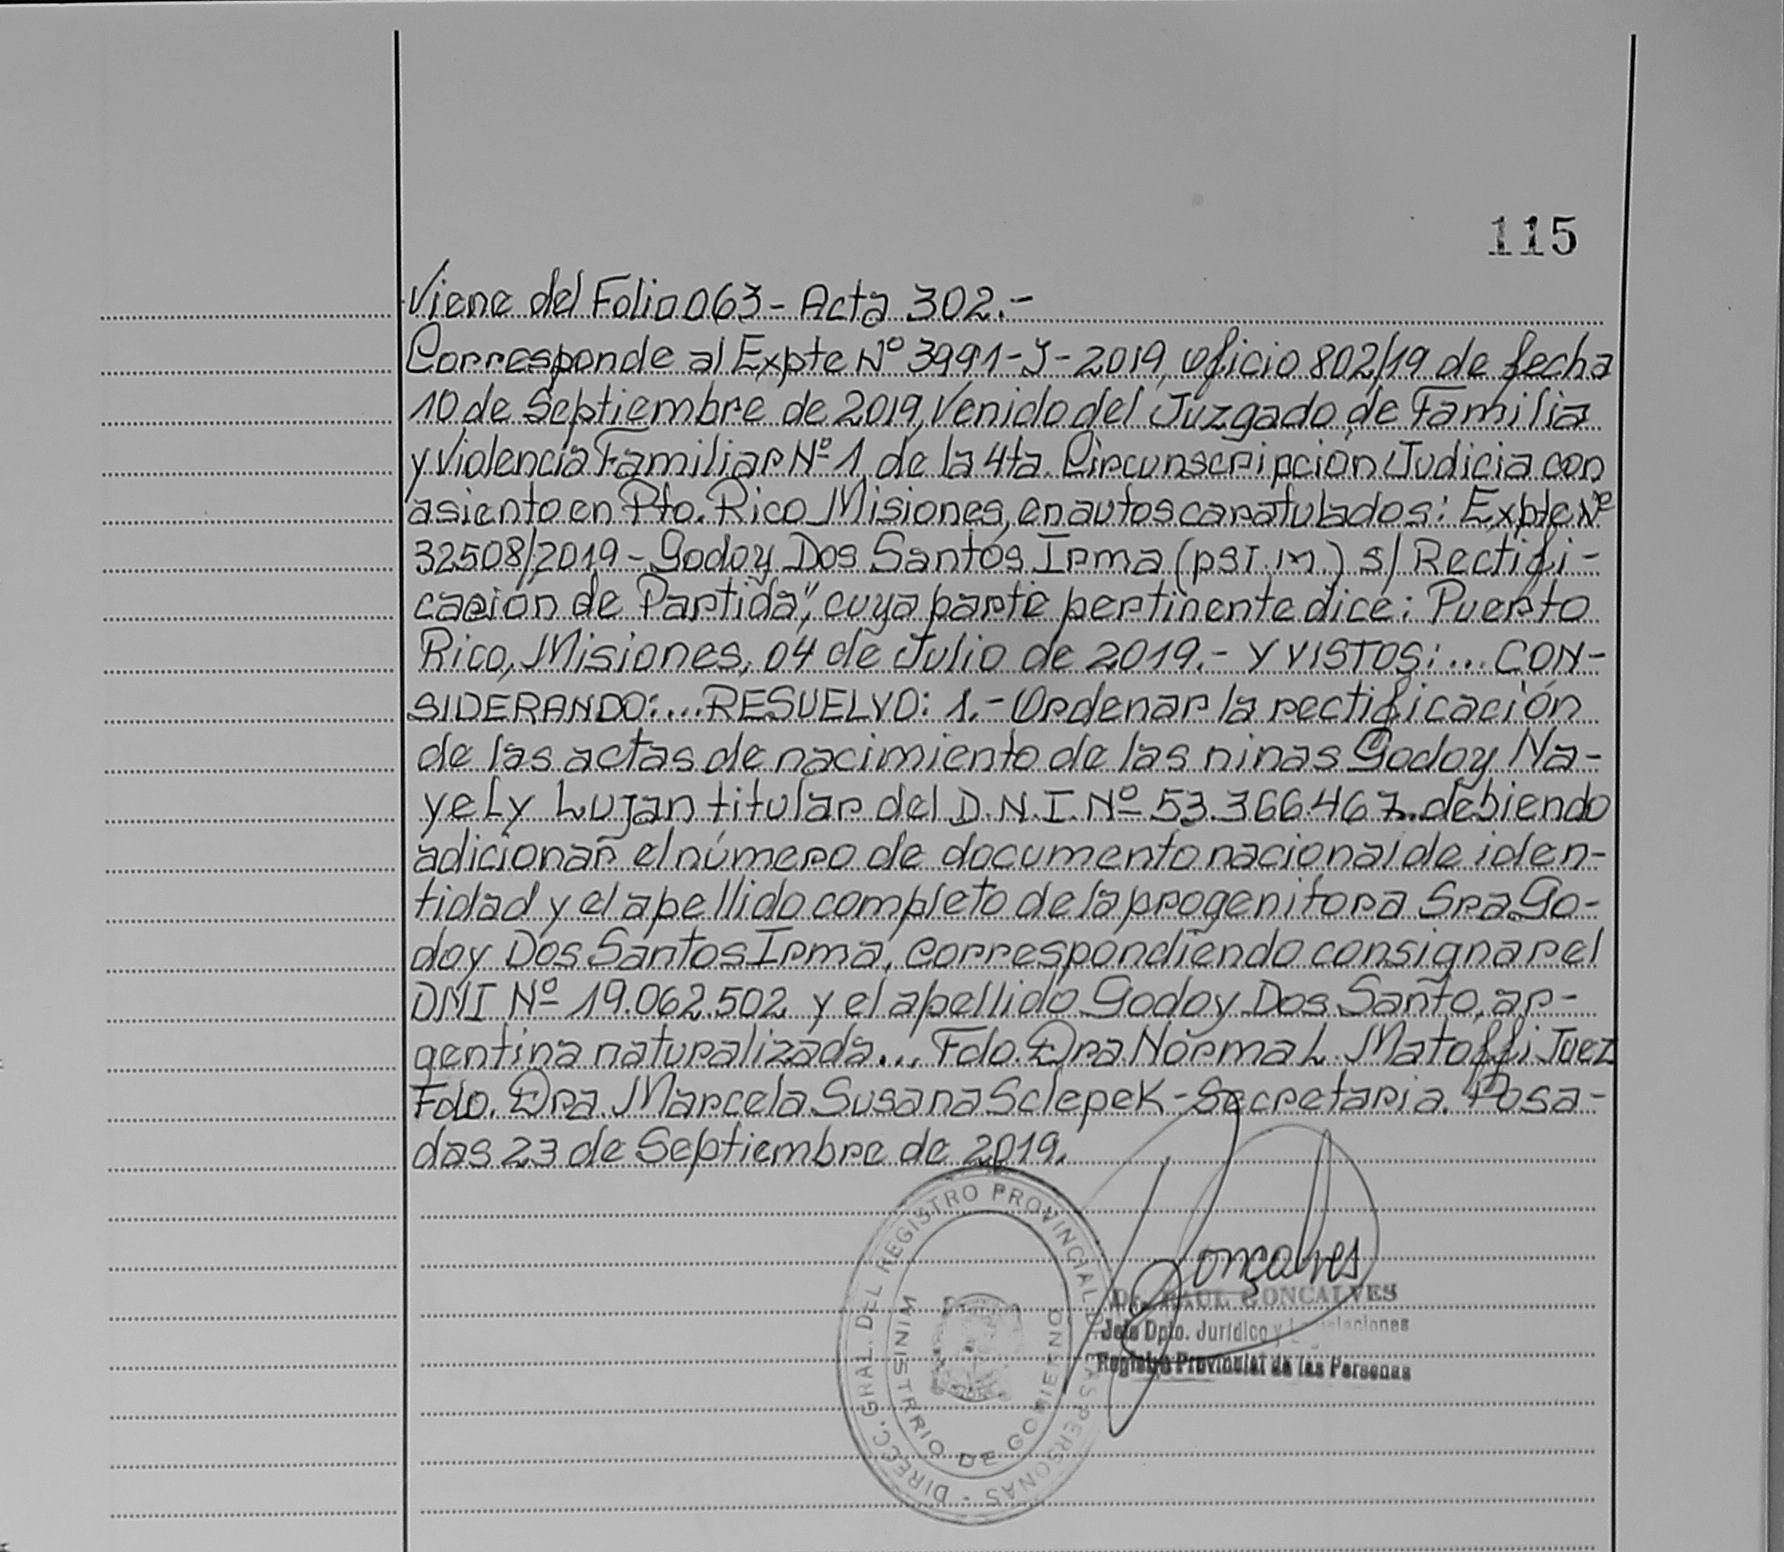 115
Viene del Folio 063- Acta 302.-
Corresponde al Expte Nº 3991-J-2019, oficio 802/19 de fecha
10 de Septiembre de 2019, Venido del Juzgado de Familia
y Violencia Familiar Nº 1 de la 4ta. Circunscripción Judicia con
asiento en Pto. Rico Misiones, en autos caratulados: Expte Nº
32508/2019-Godoy Dos Santos Irma (psI.m.) s/ Rectifi-
cación de Partida", cuya parte pertinente dice: Puerto
Rico, Misiones, 04 de Julio de 2019.- Y VISTOS:... CON-
SIDERANDO:...RESUELVO: 1.- Ordenar la rectificación
de las actas de nacimiento de las ninas Godoy Na-
yely Lujan titular del D.N.I. Nº 53.366.467. debiendo
adicionar el número de documento nacional de iden-
tidad y el apellido completo de la progenitora Sra Go-
doy Dos Santos Irma, correspondiendo consignar el
DNI Nº 19.062.502 y el apellido Godoy Dos Santo, ar-
gentina naturalizada... Fdo. Dra. Norma L. Matoffi Juez
Fdo. Dra. Marcela Susana Sclepek-Secretaria. Posa-
das 23 de Septiembre de 2019.
DIRECC. GRAL. DEL REGISTRO PROVINCIAL DE LAS PERSONAS -
MINISTERIO DE GOBIERNO
Gonçalves
Dr. RAUL GONCALVES
Jefe Dpto. Jurídico y Legislaciones
Registro Provincial de las Personas